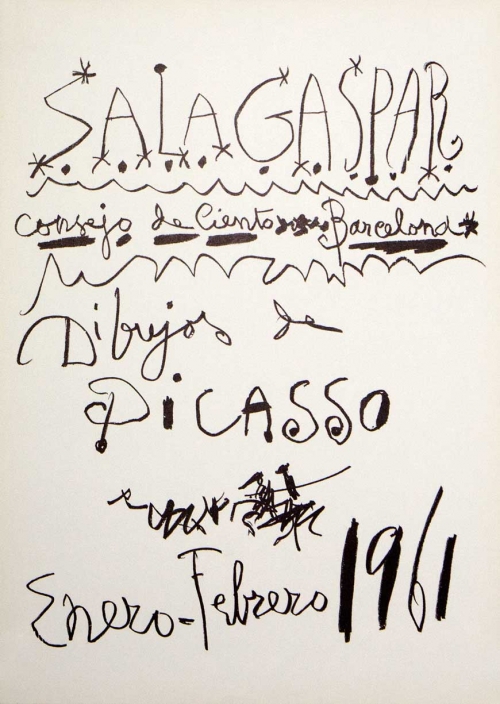 SALA GASPAR
Consejo de Ciento Barcelona
Dibujos de
PiCASSO
Enero-Febrero 1961